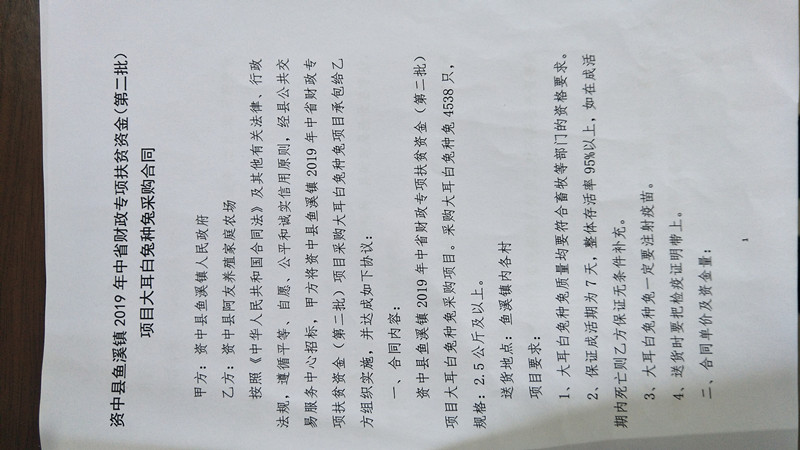 资中县鱼溪镇 2019 年中省财政专项扶贫资金（第二批）
项目大耳白兔种兔采购合同
甲方：资中县鱼溪镇人民政府
乙方：资中县阿友养殖家庭农场
按照《中华人民共和国合同法》及其他有关法律、行政
法规，遵循平等、自愿、公平和诚实信用原则，经县公共交
易服务中心招标，甲方将资中县鱼溪镇 2019 年中省财政专
项扶贫资金（第二批）项目采购大耳白兔种兔项目承包给乙
方组织实施，并达成如下协议：
一、合同内容：
资中县鱼溪镇 2019 年中省财政专项扶贫资金（第二批）
项目大耳白兔种兔采购项目。采购大耳白兔种兔 4538 只，
规格：2.5 公斤及以上。
送货地点：鱼溪镇内各村
项目要求：
1、大耳白兔种兔质量均要符合畜牧等部门的资格要求。
2、保证成活期为 7 天，整体存活率 95%以上，如在成活
期内死亡则乙方保证无条件补充。
3、大耳白兔种兔一定要注射疫苗。
4、送货时要把检疫证明带上。
二、合同单价及资金量：
1